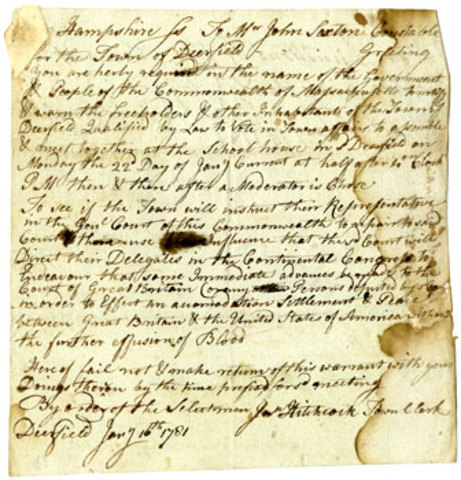 Hampshire ss To Mr John Sexton Constable
for the Town of Deerfield Greeting
you are herby required in the name of the Government
& People of the Commonwealth of Massachusetts to notify
& warn the freeholders & other Inhabitants of the Town of
Deerfield Qualified by Law to Vote in Town affairs to assemble
& meet together at the School house in sd Deerfield on
Monday the 22d Day of Jany Current at half after Clock
P M then & there after a Moderator is Chose
To see if the Town will instruct their Representative
in the Genl Court of this Commonwealth to repair to said
Court & there use Influence that the sd Court will
Direct their Delegates in the Continental Congress to
Endeavour that some Immediate advances be made to the
Court of Great Britain or any Persons
in order to Effect an accomodation Settlement & Peace
between Great Britain & the United States of America without
the further effusion of Blood
Here of fail not & make return of this warrant with your
Doings theron by the time prefixd for sd meeting
By order of the Selectmen Jus Hitchcock Town Clerk
Deerfield Jany 16th 1781